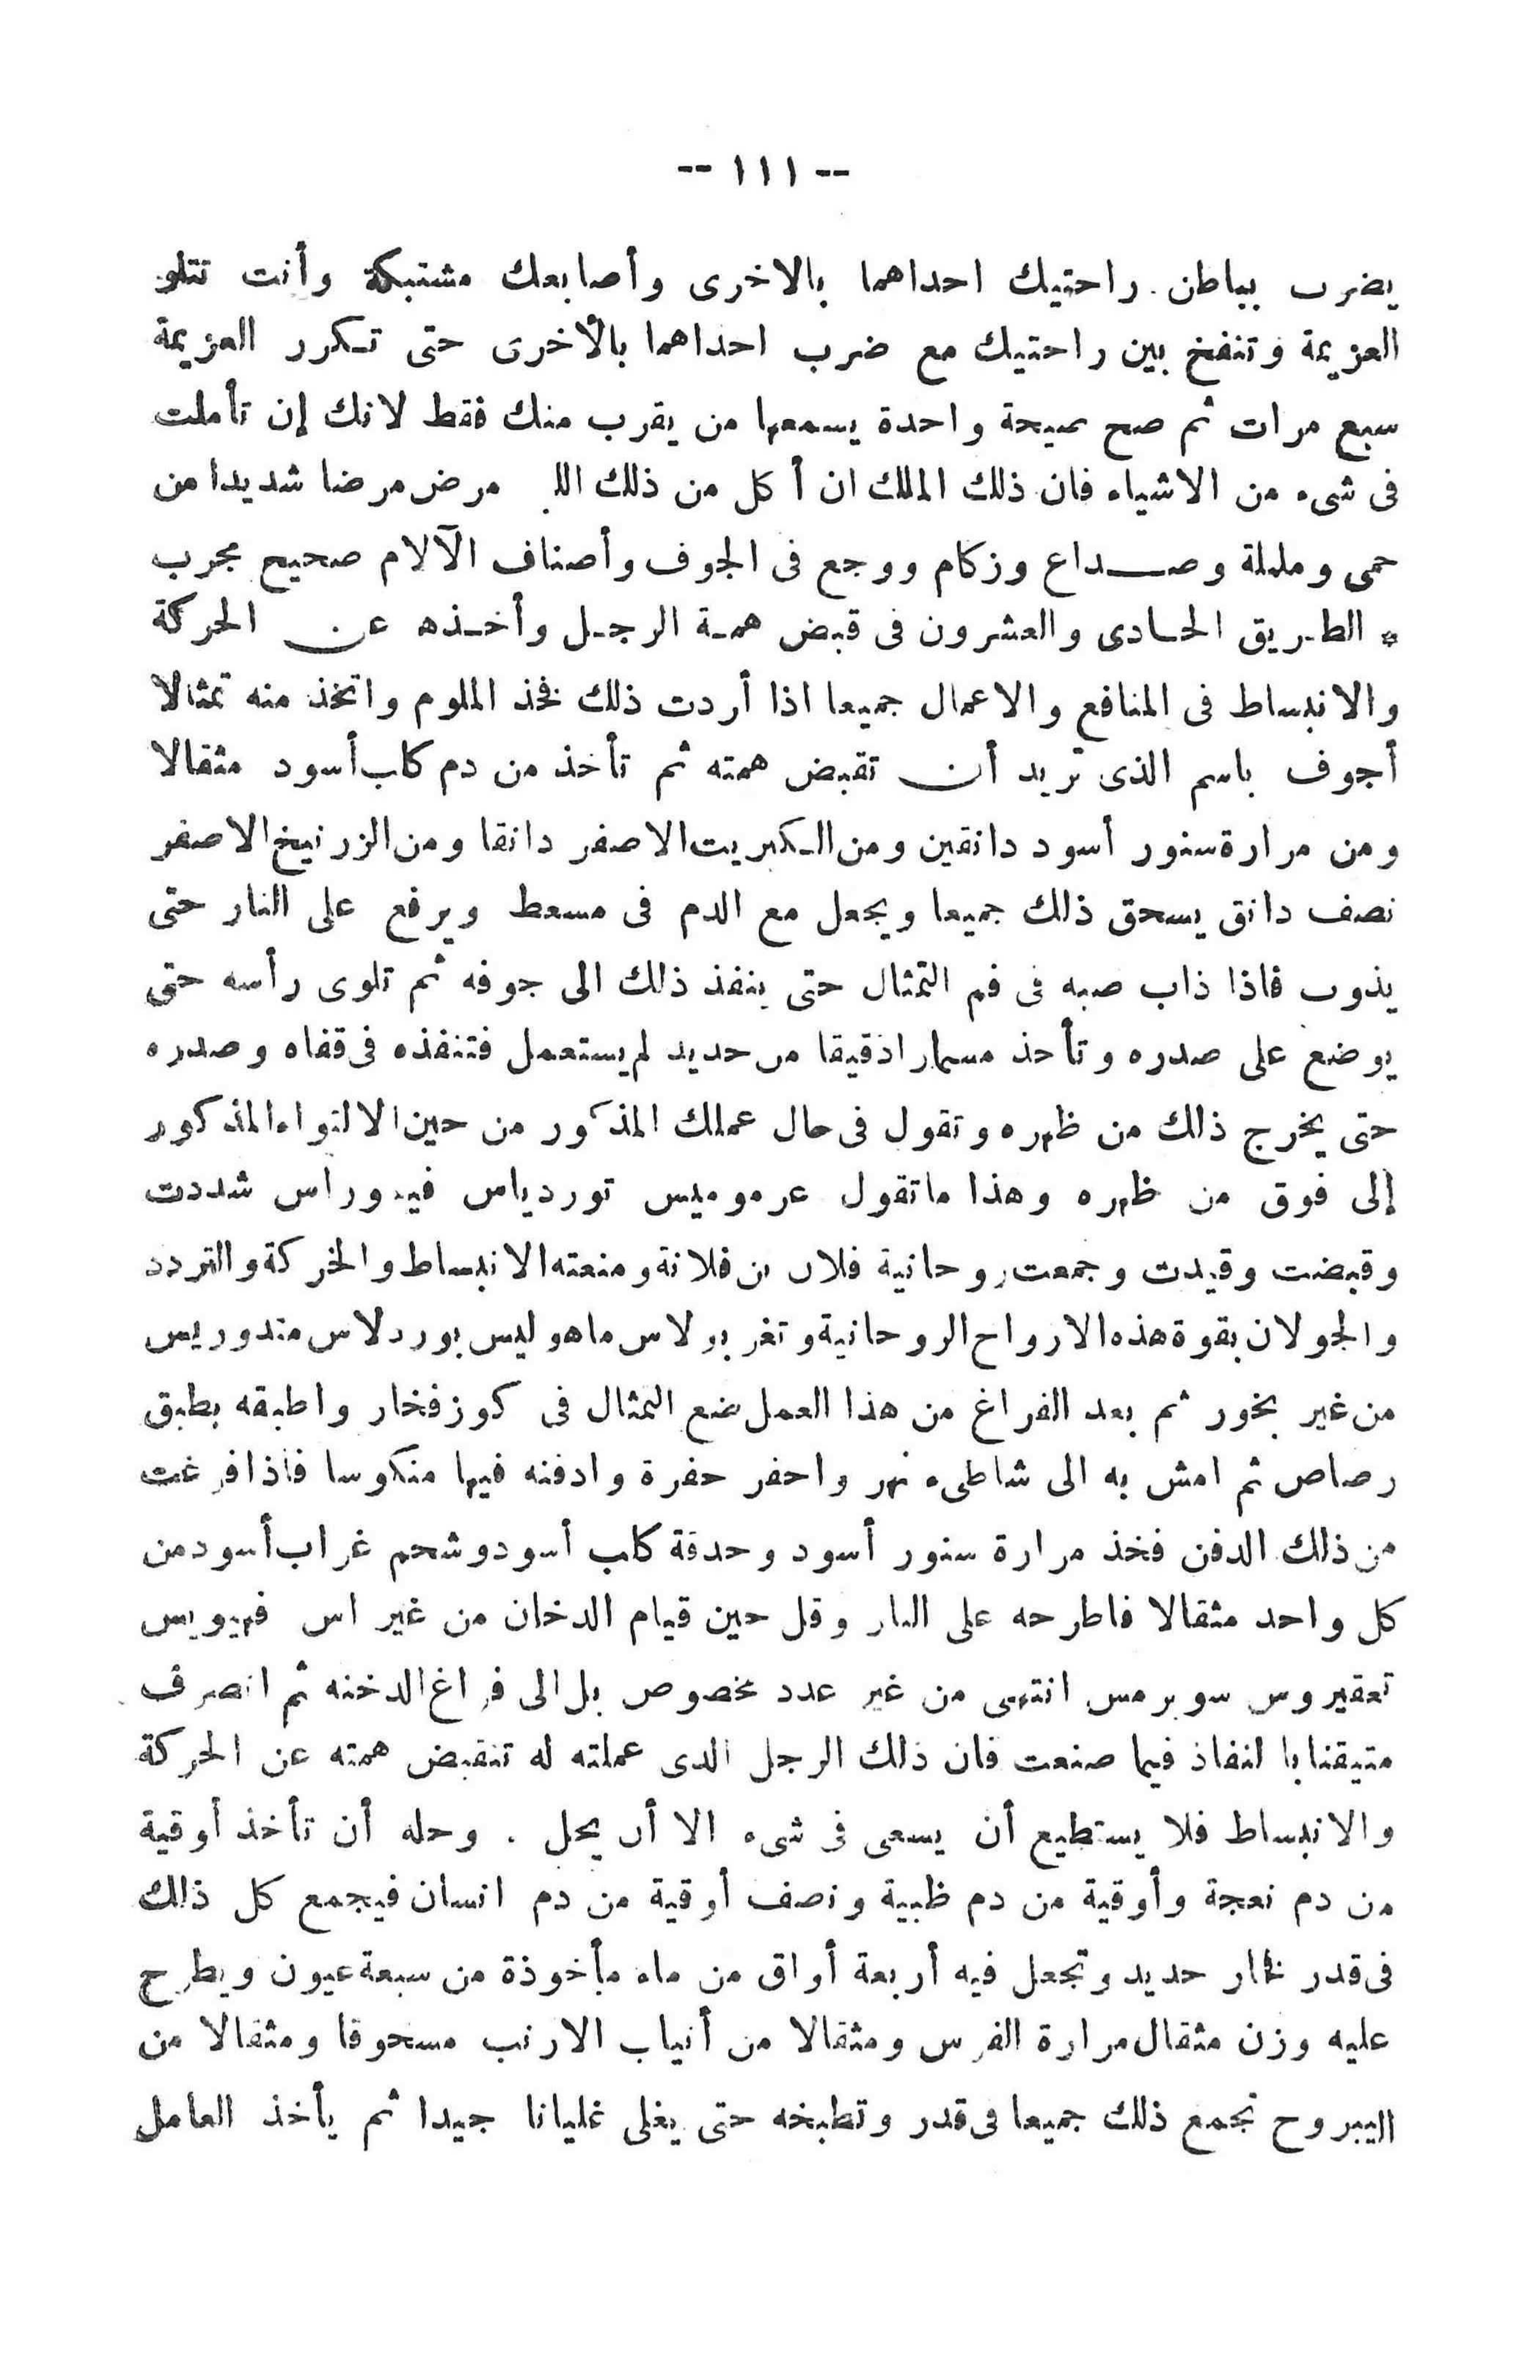 -- ١١١ --
يضرب بباطن راحتيك احداهما بالاخرى وأصابعك مشتبكة وأنت تتلو
العزيمة وتنفخ بين راحتيك مع ضرب احداهما بالأخرى حتى تكرر العزيمة
سبع مرات ثم صح صيحة واحدة يسمعها من يقرب منك فقط لانك إن تأملت
فى شىء من الاشياء فان ذلك الملك ان أكل من ذلك مرض مرضا شديدا من
حمى ومليلة وصداع وزكام ووجع فى الجوف وأصناف الآلام صحيح مجرب
* الطريق الحادى والعشرون فى قبض همة الرجل وأخذه عن الحركة
والانبساط فى المنافع والاعمال جميعا اذا أردت ذلك فخذ الملوم واتخذ منه تمثالا
أجوف باسم الذى تريد أن تقبض همته ثم تأخذ من دم كلب أسود مثقالا
ومن مرارة سنور أسود دانقين ومن الكبريت الاصفر دانقا ومن الزرنيخ الاصفر
نصف دانق يسحق ذلك جميعا ويجعل مع الدم فى مسعط ويرفع على النار حتى
يذوب فاذا ذاب صبه فى فم التمثال حتى ينفذ ذلك الى جوفه ثم تلوى رأسه حتى
يوضع على صدره وتأخذ مسمارا دقيقا من حديد لم يستعمل فتنفذه فى قفاه وصدره
حتى يخرج ذلك من ظهره وتقول فى حال عملك المذكور من حين الالتواء المذكور
إلى فوق من ظهره وهذا ما تقول عرموميس توردياس فيدوراس شددت
وقبضت وقيدت وجمعت روحانية فلان بن فلانة ومنعته الانبساط والحركة والتردد
والجولان بقوة هذه الارواح الروحانية وتغر بولاس ماهو ليس بوردلاس مندوريس
من غير بخور ثم بعد الفراغ من هذا العمل ضع التمثال فى كوز فخار واطبقه بطبق
رصاص ثم امش به الى شاطىء نهر واحفر حفرة وادفنه فيها منكوسا فاذا فرغت
من ذلك الدفن فخذ مرارة سنور أسود وحدقة كلب أسود وشحم غراب أسود من
كل واحد مثقالا فاطرحه على النار وقل حين قيام الدخان من غير اس فهيويس
تعقيروس سوبرمس انتهى من غير عدد مخصوص بل الى فراغ الدخنه ثم انصرف
متيقنا با لنفاذ فيما صنعت فان ذلك الرجل الذى عملته له تنقبض همته عن الحركة
والانبساط فلا يستطيع أن يسعى فى شىء الا أن يحل . وحله أن تأخذ أوقية
من دم نعجة وأوقية من دم ظبية ونصف أوقية من دم انسان فيجمع كل ذلك
فى قدر فخار حديد وتجعل فيه أربعة أواق من ماء مأخوذة من سبعة عيون ويطرح
عليه وزن مثقال مرارة الفرس ومثقالا من أنياب الارنب مسحوقا ومثقالا من
اليبروح تجمع ذلك جميعا فى قدر وتطبخه حتى يغلى غليانا جيدا ثم يأخذ العامل